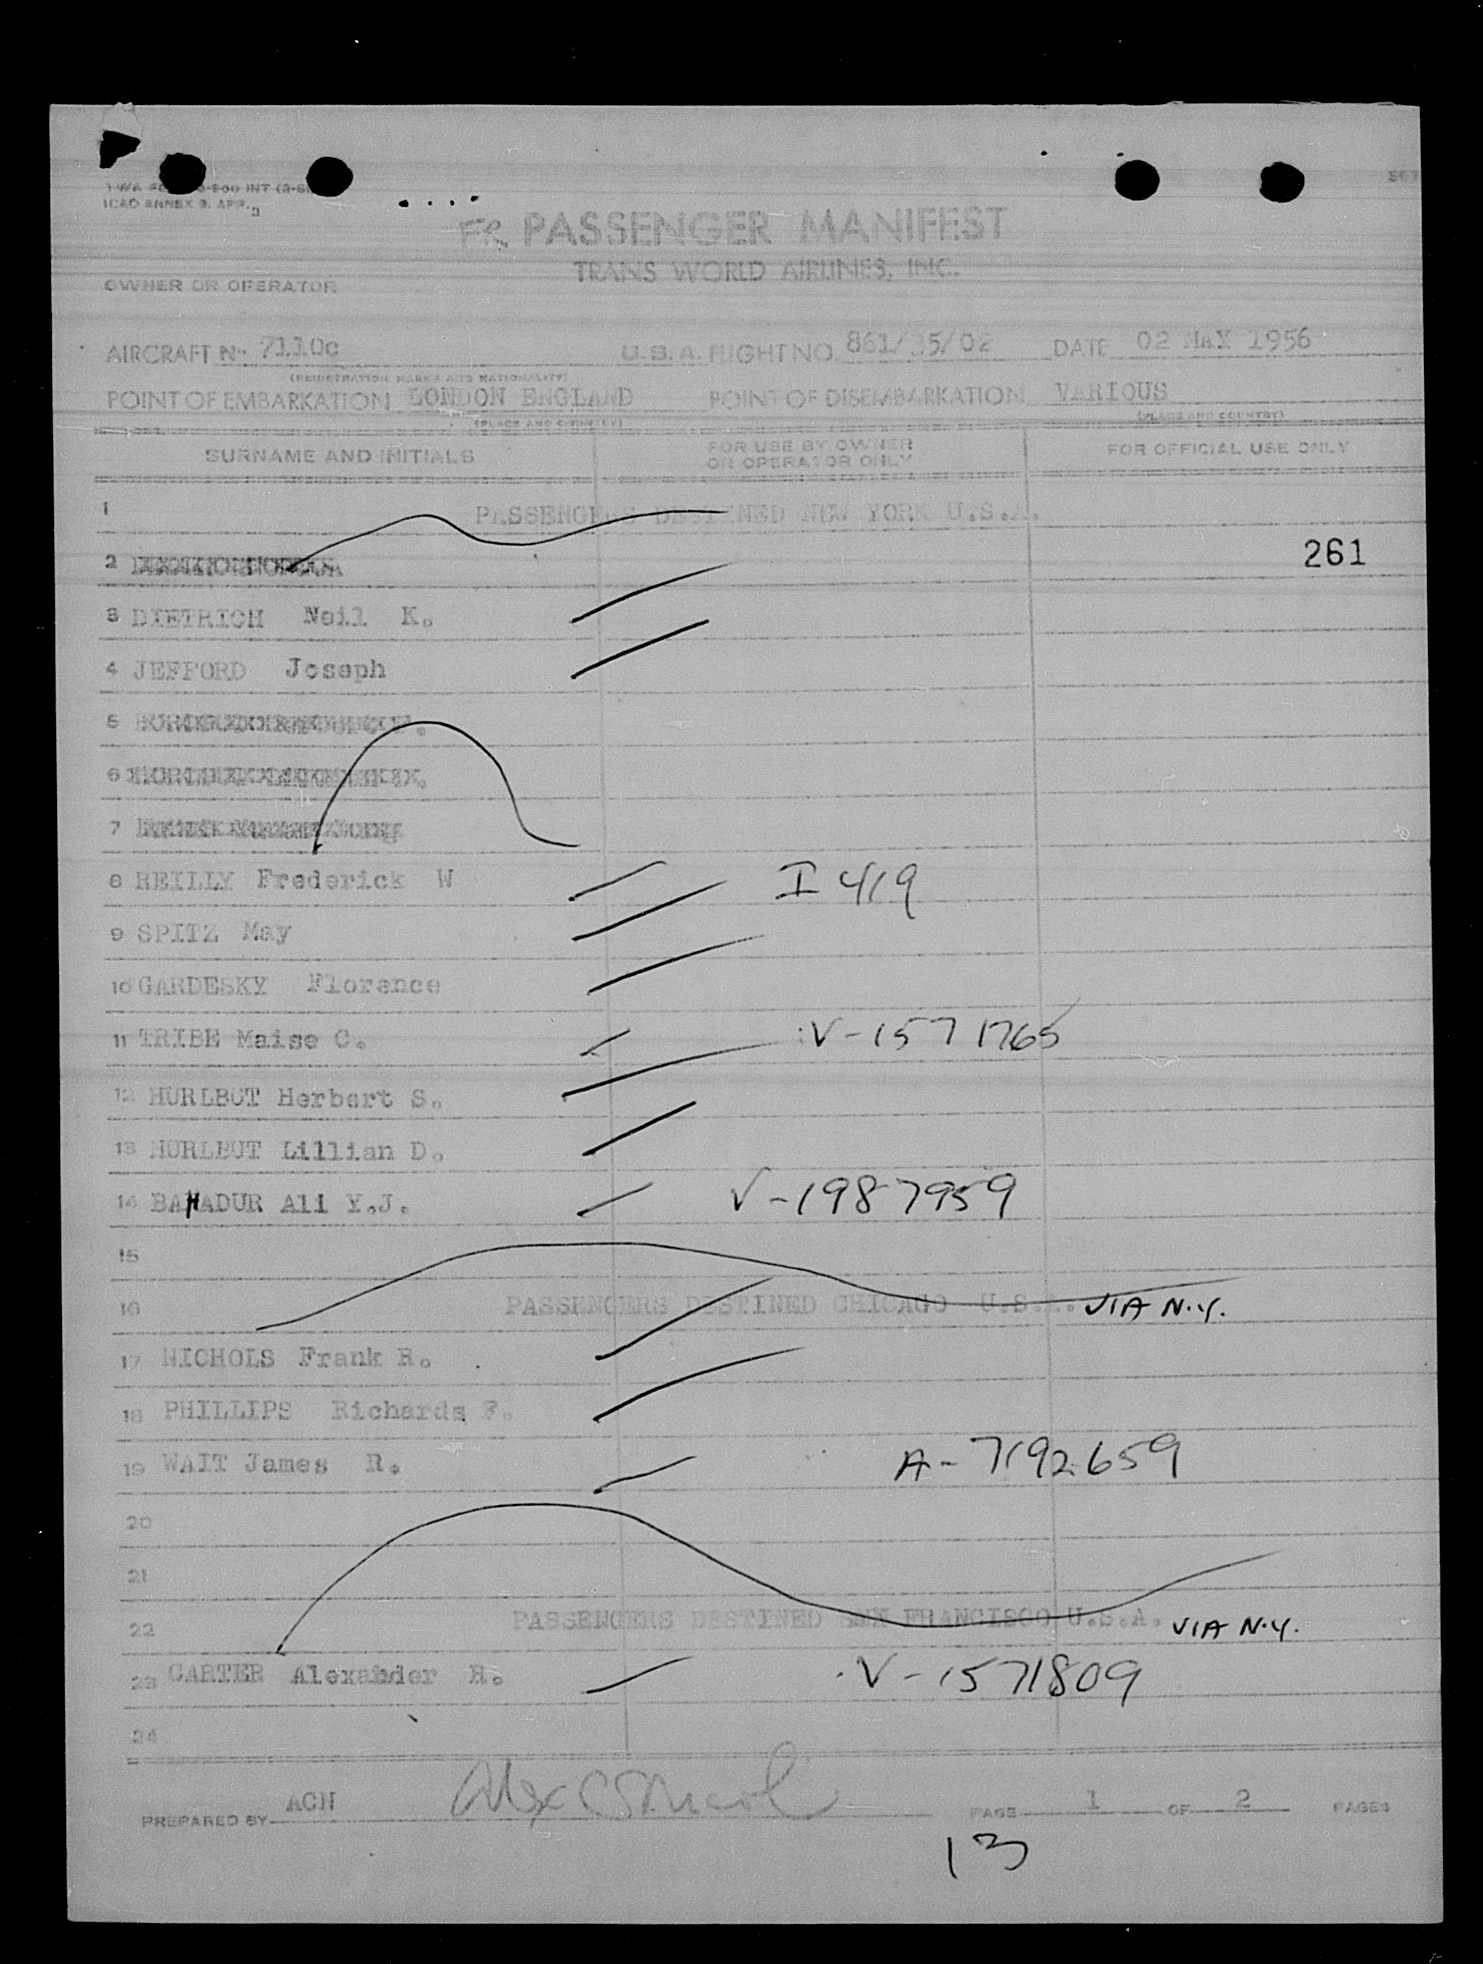 ICAO ANNEX 9. APP. 3
FR PASSENGER MANIFEST
TRANS WORLD AIRLINES, INC.
OWNER OR OPERATOR
AIRCRAFT No. 7110c U.S.A. FLIGHT NO. 861/35/02 DATE 02 MaX 1956
(REGISTRATION MARKS AND NATIONALITY)
POINT OF EMBARKATION LONDON ENGLAND POINT OF DISEMBARKATION VARIOUS
(PLACE AND COUNTRY) (PLACE AND COUNTRY)
SURNAME AND INITIALS FOR USE BY OWNER OR OPERATOR ONLY FOR OFFICIAL USE ONLY
1 PASSENGERS DESTINED NEW YORK U.S.A.
2 261
3 DIETRICH Neil K.
4 JEFFORD Joseph
5
6
7
8 REILLY Frederick W I 419
9 SPITZ May
10 GARDESKY Florence
11 TRIBE Maise C. V-1571765
12 HURLBUT Herbert S.
13 HURLBUT Lillian D.
14 BAHADUR Ali Y.J. V-1987959
15
16 PASSENGERS DESTINED CHICAGO U.S.A. VIA N.Y.
17 NICHOLS Frank R.
18 PHILLIPS Richards F.
19 WAIT James R. A-7192659
20
21
22 PASSENGERS DESTINED SAN FRANCISCO U.S.A. VIA N.Y.
23 CARTER Alexander H. V-1571809
24
PREPARED BY ACN PAGE 1 OF 2 PAGES
13